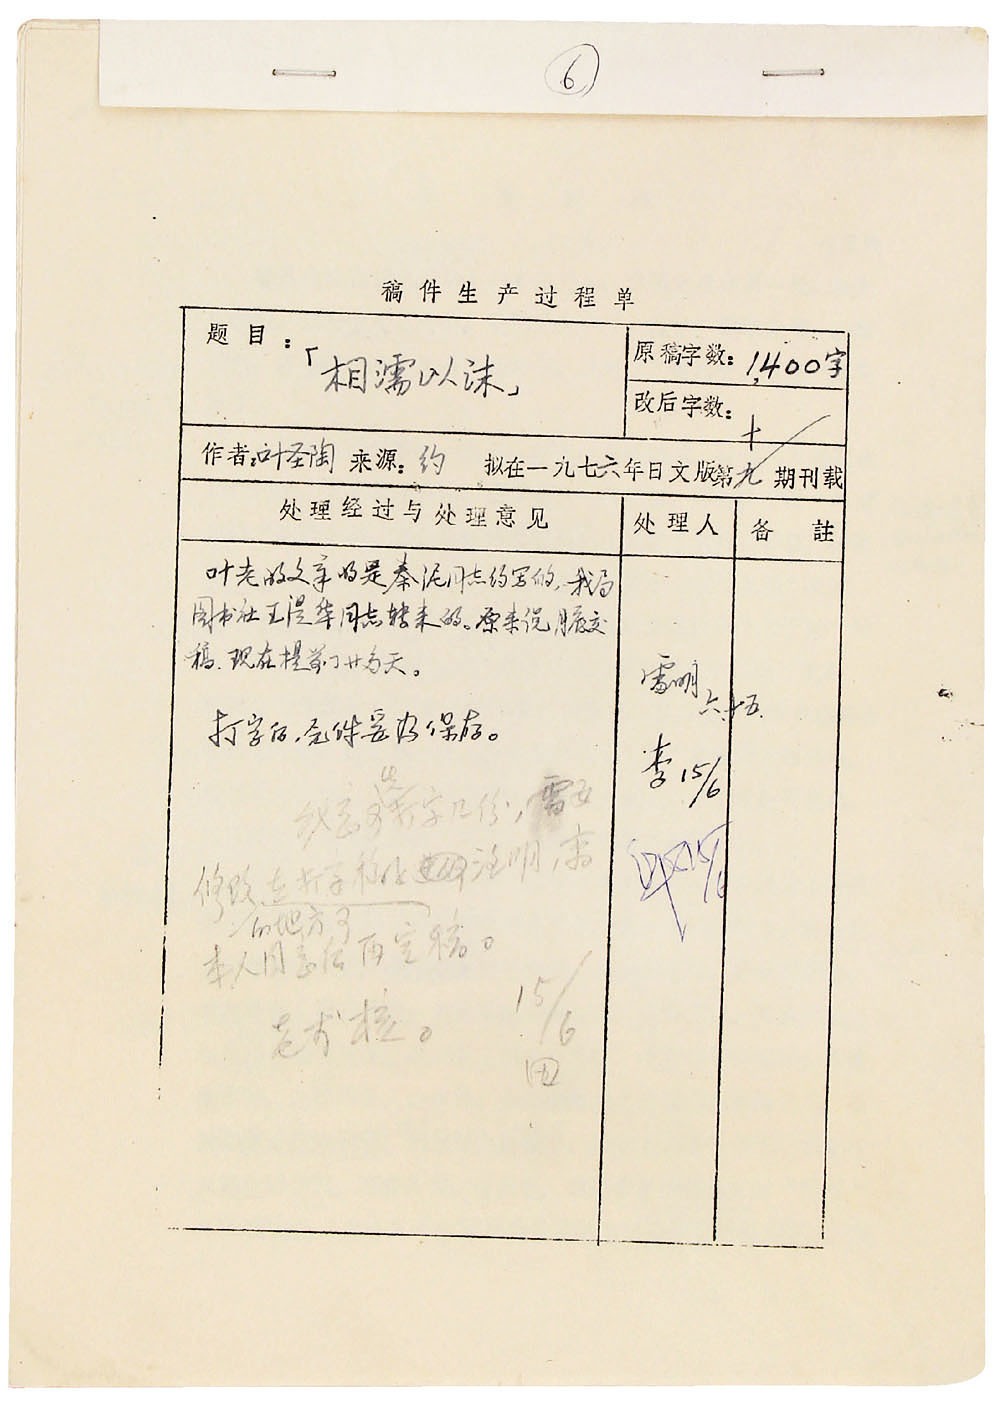 6
稿件生产过程单
题目：「相濡以沫」
原稿字数：1,400字
改后字数：
作者：叶圣陶 来源：约 拟在一九七六年日文版第九期刊载
处理经过与处理意见 处理人 备註
叶老的文章是秦泥同志约写的，我局
图书社王 华同志转来的。原来说月底交
稿，现在提前了廿多天。
打字后，原件要妥为保存。
雷明
六.十五.
李 15/6
15/6
打字几份，
修改 在打字稿 注明，
的地方可
本人同意后再定稿。
15/6